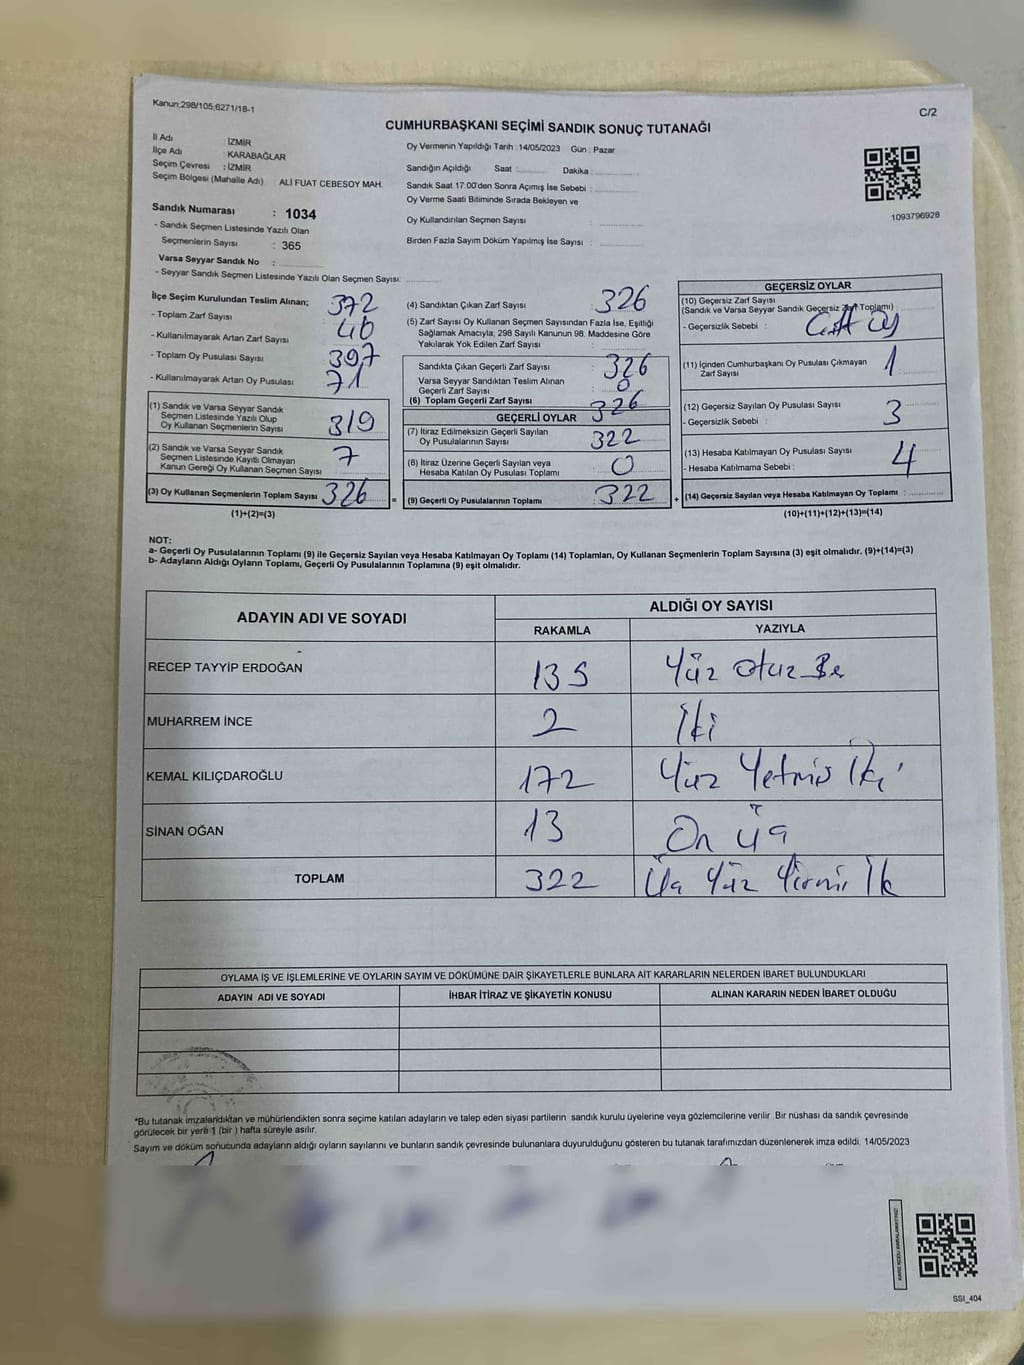 Kanun;298/105;6271/18-1
C/2
CUMHURBAŞKANI SEÇİMİ SANDIK SONUÇ TUTANAĞI
İl Adı : İZMİR
İlçe Adı : KARABAĞLAR
Seçim Çevresi : İZMİR
Seçim Bölgesi (Mahalle Adı) : ALİ FUAT CEBESOY MAH.
Sandık Numarası : 1034
- Sandık Seçmen Listesinde Yazılı Olan
Seçmenlerin Sayısı : 365
Varsa Seyyar Sandık No :
- Seyyar Sandık Seçmen Listesinde Yazılı Olan Seçmen Sayısı:
Oy Vermenin Yapıldığı Tarih : 14/05/2023 Gün : Pazar
Sandığın Açıldığı Saat : Dakika :
Sandık Saat 17:00'den Sonra Açımış İse Sebebi :
Oy Verme Saati Bitiminde Sırada Bekleyen ve
Oy Kullandırılan Seçmen Sayısı :
Birden Fazla Sayım Döküm Yapılmış İse Sayısı :
1093796928
İlçe Seçim Kurulundan Teslim Alınan;
- Toplam Zarf Sayısı 372
- Kullanılmayarak Artan Zarf Sayısı 46
- Toplam Oy Pusulası Sayısı 397
- Kullanılmayarak Artan Oy Pusulası 71
(1) Sandık ve Varsa Seyyar Sandık
Seçmen Listesinde Yazılı Olup
Oy Kullanan Seçmenlerin Sayısı 319
(2) Sandık ve Varsa Seyyar Sandık
Seçmen Listesinde Kayıtlı Olmayan
Kanun Gereği Oy Kullanan Seçmen Sayısı 7
(3) Oy Kullanan Seçmenlerin Toplam Sayısı 326 =
(1)+(2)=(3)
(4) Sandıktan Çıkan Zarf Sayısı 326
(5) Zarf Sayısı Oy Kullanan Seçmen Sayısından Fazla İse, Eşitliği
Sağlamak Amacıyla; 298 Sayılı Kanunun 98. Maddesine Göre
Yakılarak Yok Edilen Zarf Sayısı :
Sandıkta Çıkan Geçerli Zarf Sayısı 326
Varsa Seyyar Sandıktan Teslim Alınan
Geçerli Zarf Sayısı 0
(6) Toplam Geçerli Zarf Sayısı 326
GEÇERLİ OYLAR
(7) İtiraz Edilmeksizin Geçerli Sayılan
Oy Pusulalarının Sayısı 322
(8) İtiraz Üzerine Geçerli Sayılan veya
Hesaba Katılan Oy Pusulası Toplamı 0
(9) Geçerli Oy Pusulalarının Toplamı 322 +
GEÇERSİZ OYLAR
(10) Geçersiz Zarf Sayısı
(Sandık ve Varsa Seyyar Sandık Geçersiz Zarf Toplamı)
- Geçersizlik Sebebi :
(11) İçinden Cumhurbaşkanı Oy Pusulası Çıkmayan
Zarf Sayısı 1
(12) Geçersiz Sayılan Oy Pusulası Sayısı 3
- Geçersizlik Sebebi :
(13) Hesaba Katılmayan Oy Pusulası Sayısı 4
- Hesaba Katılmama Sebebi :
(14) Geçersiz Sayılan veya Hesaba Katılmayan Oy Toplamı :
(10)+(11)+(12)+(13)=(14)
NOT:
a- Geçerli Oy Pusulalarının Toplamı (9) ile Geçersiz Sayılan veya Hesaba Katılmayan Oy Toplamı (14) Toplamları, Oy Kullanan Seçmenlerin Toplam Sayısına (3) eşit olmalıdır. (9)+(14)=(3)
b- Adayların Aldığı Oyların Toplamı, Geçerli Oy Pusulalarının Toplamına (9) eşit olmalıdır.
ADAYIN ADI VE SOYADI ALDIĞI OY SAYISI
RAKAMLA YAZIYLA
RECEP TAYYİP ERDOĞAN 135 Yüz otuz Be
MUHARREM İNCE 2 İki
KEMAL KILIÇDAROĞLU 172 Yüz Yetmiş İki
SİNAN OĞAN 13 On üç
TOPLAM 322 Üç Yüz Yirmi İk
OYLAMA İŞ VE İŞLEMLERİNE VE OYLARIN SAYIM VE DÖKÜMÜNE DAİR ŞİKAYETLERLE BUNLARA AİT KARARLARIN NELERDEN İBARET BULUNDUKLARI
ADAYIN ADI VE SOYADI İHBAR İTİRAZ VE ŞİKAYETİN KONUSU ALINAN KARARIN NEDEN İBARET OLDUĞU
*Bu tutanak imzalandıktan ve mühürlendikten sonra seçime katılan adayların ve talep eden siyasi partilerin sandık kurulu üyelerine veya gözlemcilerine verilir. Bir nüshası da sandık çevresinde
görülecek bir yere 1 (bir ) hafta süreyle asılır.
Sayım ve döküm sonucunda adayların aldığı oyların sayılarını ve bunların sandık çevresinde bulunanlara duyurulduğunu gösteren bu tutanak tarafımızdan düzenlenerek imza edildi. 14/05/2023
SSI_404